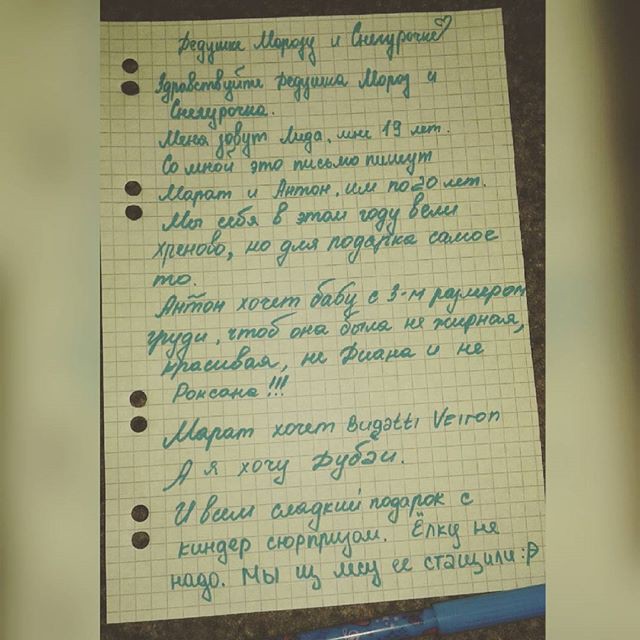 Дедушке Морозу и Снегурочке♡
Здравствуйте Дедушка Мороз и
Снегурочка.
Меня зовут Лида, мне 19 лет.
Со мной это письмо пишут
Марат и Антон, им по 20 лет.
Мы себя в этом году вели
хреново, но для подарка самое
то.
Антон хочет бабу с 3-м размером
груди, чтоб она была не жирная,
красивая, не Диана и не
Роксана!!!
Марат хочет Bugatti Veiron
А я хочу Дубай.
И всем сладкий подарок с
киндер сюрпризом. Ёлку не
надо. Мы из лесу её стащили :Р